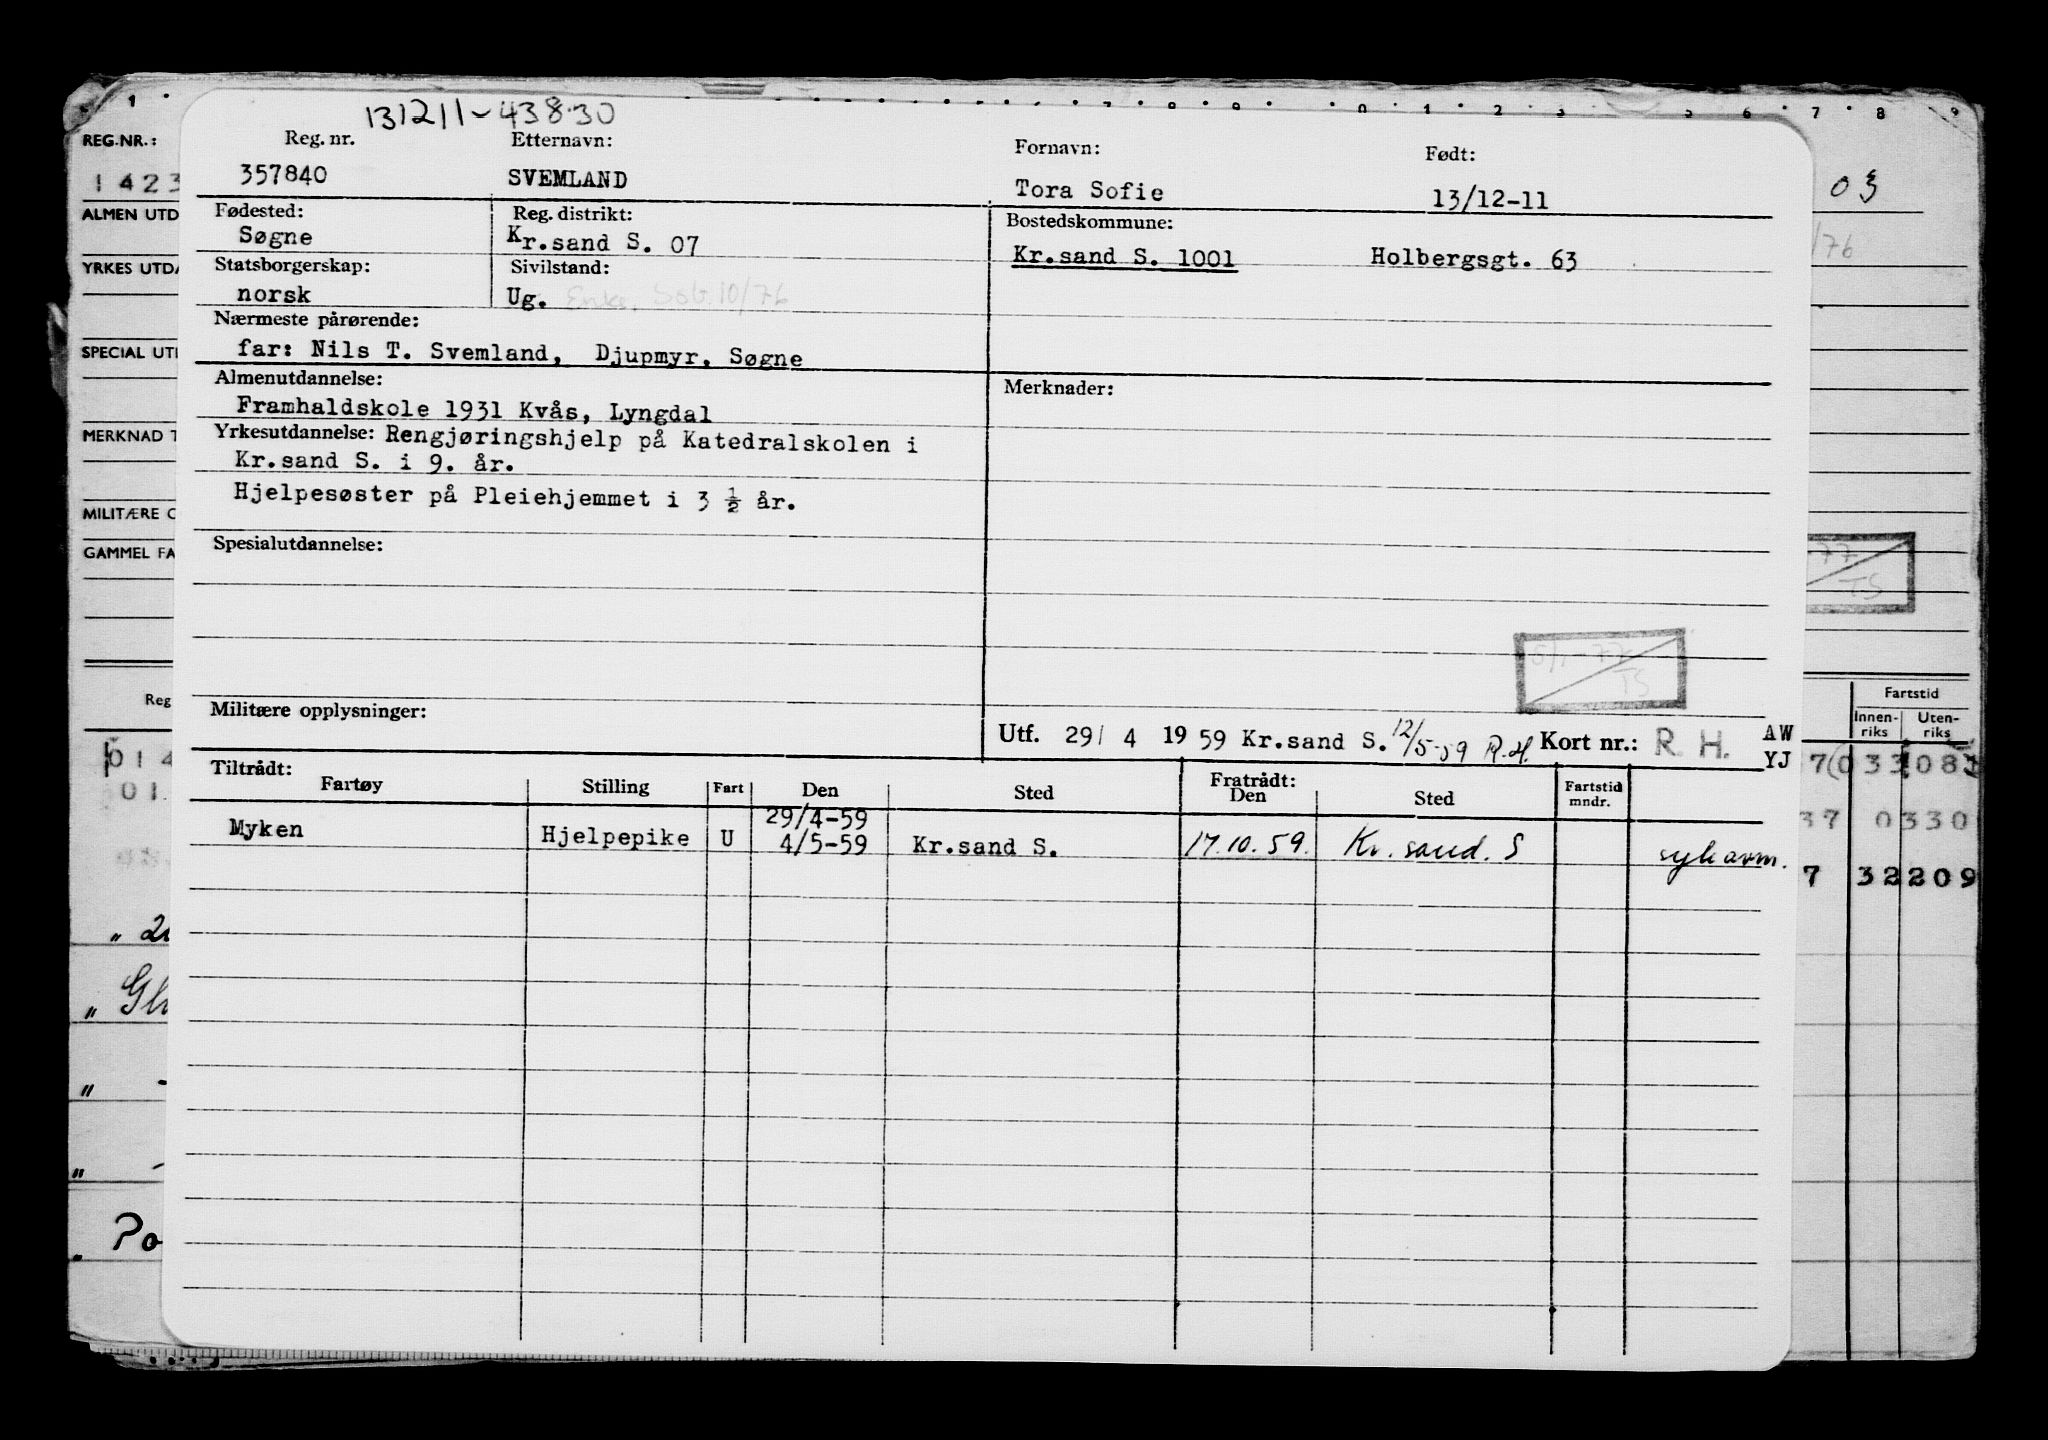 131211-43830
Reg. nr. Etternavn: Fornavn: Født:
357840 SVEMLAND Tora Sofie 13/12-11
Fødested: Reg. distrikt: Bostedskommune:
Søgne Kr.sand S. 07 Kr.sand S. 1001 Holbergsgt. 63
Statsborgerskap: Sivilstand:
norsk Ug. Enke. 10/76
Nærmeste pårørende:
far: Nils T. Svemland, Djupmyr, Søgne
Almenutdannelse: Merknader:
Framhaldskole 1931 Kvås, Lyngdal
Yrkesutdannelse: Rengjøringshjelp på Katedralskolen i
Kr.sand S. i 9. år.
Hjelpesøster på Pleiehjemmet i 3 ½ år.
Spesialutdannelse:
5/1-77
TS
Militære opplysninger:
Utf. 29/ 4 1959 Kr.sand S. 12/5-59 R.H. Kort nr.: R. H. AW
YJ
Tiltrådt: Fratrådt:
Fartøy Stilling Fart Den Sted Den Sted Fartstid mndr.
29/4-59
Myken Hjelpepike U 4/5-59 Kr.sand S. 17.10.59. Kr. sand. S sykeavm.
REG.NR.:
1423
03
ALMEN UTD
/76
YRKES UTDA
SPECIAL UTI
MERKNAD T
MILITÆRE O
GAMMEL FA
-77
TS
Reg
Fartstid
Innen-riks Uten-riks
014
7(033 083
01
37 0330
7 32209
" 2
" Gl
" -
" -
" Po